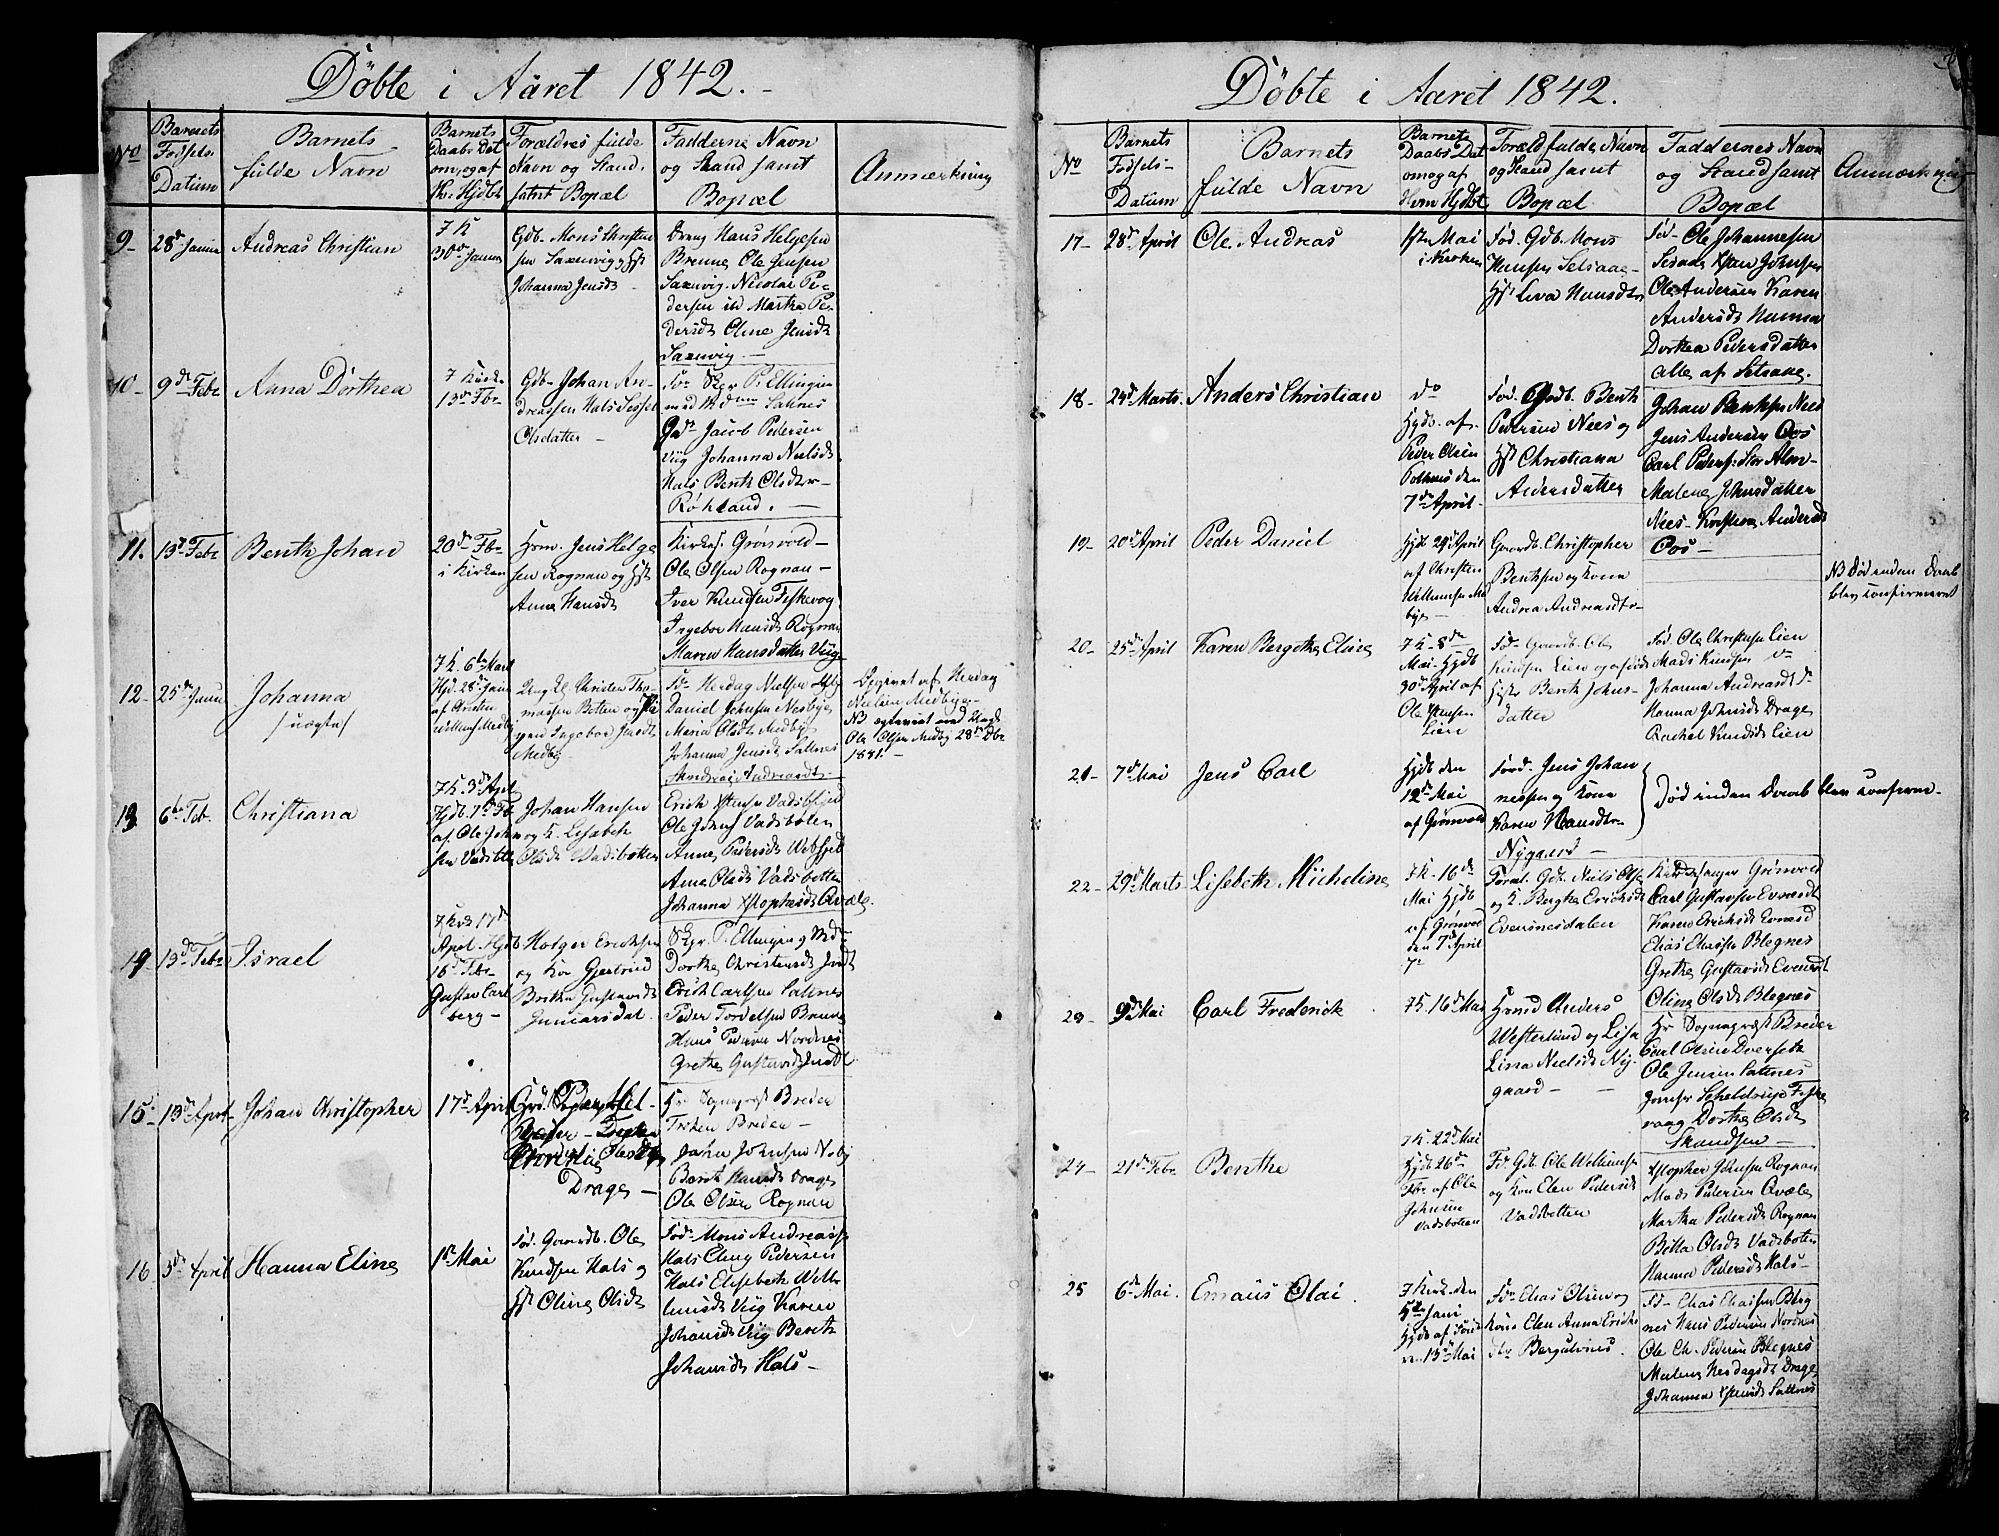 Döbte i Aaret 1842.
No
Barnets
Födsels
Datum
Barnets
fulde Navn
Barnets
Daabs Dat
om, og af
Hv: Hjdbt
Forældres fulde
Navn og Stand
samt Bopæl
Fadderne Navn
og Stand samt
Bopæl
Anmærkning
9 - 28de Januar
Andreas Christian
7 K
30te Januar
Gdb. Mons Christen
sen Saxenvig og Hst
Johanna Jensdt
Dreng Hans Helgesen
Brenne Ole Jensen
Saxnvig. Nicolai Pe-
dersen ibd Martha Pe-
dersdt Oline Jensdt
Saxenvig. -
10 - 9de Febr
Anna Dorthea
7 Kirke
13de Fbr
Gdb. Johan An-
dreassen Hals
Olsdatter -
P: Ellingsen
Saltnes
Jacob Pedersen
Viig Johanna Nielsdt
Hals Berith Olsdtr
Rökland. -
11. 13de Febr
Benth Johan
20de Fbr
i Kirken
Hom. Jens Helge
sen Rognan og Hst
Anne Hansdt
Kirkes. Grönvold -
Ole Olsen Rognan -
Iver Knudsen Fiskevog
Ingebor Hansdt Rognan
Maren Hansdatter Viig
12 - 25de Janu
Johanna
/uægta/
7 K. 6te Mart
Hjd. 28de Janu
af Christen
Willums Medby
Ung K. Christen Tho-
masen Botten og Pi
gen Ingebor Jensdt
Medby
Herdag Nielsen
Daniel Johnsen Nesbye
Maria Olsdt Medby
Johanna Jensdt Saltnes
Andreadt
Opgivet af Herdag
Nielsen Medbye
NB ægteviet med Ungk
Ole Olsen Medby 28de Dbr
1881. -
13 6te Feb.
Christiana
7 K. 3de April
Hjdb. 7de Fb
af Ole John
sen Vadsbtte
Johan Hansen
og K. Lisabeth
Olsdt Vadsbotten
Erich
Ole Johns Vadsboten
Anne Pedersdt
Ane Olsdt Vadsbotten
Johanna Xstophersdt Qvæle.
14 - 13de Febr
Israel
7 Kirk 17de
April Hjd
16de Febr
Gustav Carl
berg -
Holger Ericksen
og Kon Gjertrud
Britha Gustavsdt
Junkersdal.
P. Ellingsen
Dorthe Christensdt
Erich Carlsen Saltnes
Peder Tordelsen Brenne
Hans Pedersen Nordnes
Grethe Gustavsdt
15 - 13de April
Johan Christopher
17de April
Gdb. Peder
Olsdtr
Drage -
Hr Sognepræst Breder
Fröken Breder -
Johan Johnsen Neby
Berith Hansdt Drage
Ole Olsen Rognan
16 5de April
Hanna Eline
1ste Mai
Föd. Gaardb. Ole
Knudsen Hals og
Hst Oline Olsdt
Föd. Mons Andreass.
Hals Elling Pedersen
Hals Elisebeth Will-
umsdt Viig Karen
Johansdt Viig Bereth
Johansdt Hals -
Döbte i Aaret 1842.
No
Barnets
Födsels-
Datum
Barnets
fulde Navn
Barnets
Daabs Dat
om og af
Hvm Hjdbt
Foræld fulde Navn
og Stand samt
Bopæl
Faddernes Navn
og Stand samt
Bopæl
Anmærkning
17 - 28de April
Ole Andreas
1ste Mai
i Kirken
Föd. Gdb. Mons
Hansen Setsaae -
Hst Leva Hansdtr
Föd. Ole Johannesen
Setsaae Xstan Johnsen
Ole Andersen Karen
Andersdt Hanna
Dorthea Pedersdatter
Alle af Setsaae.
18 - 24de Marts.
Anders Christian
do
Hjdb. af
Peder Olsen
Pothus den
7de April
Föd. Gdb. Benth
Pedersen Nees og
Hst Christiana
Andersdatter
Johan Benthsen Nees
Jens Andersen Oos
Carl Peders: Stor Alm-
Malene Johnsdatter
Nees - Kristina Andersdt
Oos -
19 - 20de April
Peder Daniel
Hjd 29de April
af Christen
Willumsen Me
bye -
Gaardb. Christopher
Benthsen og Kone
Andrea Andreasdtr
NB Död inden Daab
blev confirmeret
20 - 25de April
Karen Bergithe Eline
7 K - 8de
Mai - Hjdb
30te April af
Ole Knudsen
Lien
Gaardb. Ole
Knudsen Lien
Berith Johns-
datter
Föd Ole Christensen Lien
Mads Knudsen do
Johanna Andreasdt do
Hanna Johnsdt Drage
Rachel Knudsdt Lien
21 - 7de Mai
Jens Carl
Hjdb den
12te Mai
af Grönvold
Foræld. Jens Johan
nessen og Kone
Karen Hansdtr
Nygaard -
Död inden Daab blev confirme.
22 - 29de Marts
Lisebeth Micheline
7 K - 16de
Mai Hjdb
af Grönvold
den 7de April
Foræl. Gdb. Niels Olse
og K. Bergthe Ericksdt
Evensnesdalen
Kirkesanger Grönvold
Carl Gustavsen
Karen Ericksdt
Elias Eliassen Blegnes
Grethe Gustavsdt
Oline Olsdt Blegnes
23 - 9de Mai
Carl Frederick
7 K. 16de Mai
Hmd Anders
Westerlund og Lisa
Lina Nielsdt Ny-
gaard -
Hr Sognepræst Breder
Carl Olsen Dverseth
Ole Jensen Saltnes
Jomfr Scheldrup Fiske
vaag Dorthe Olsdt
Skandsen -
24 - 21de Febr
Benthe
7 K. 22de Mai
Hjdb 26de
Febr. af Ole
Johnsen
Vadsbotten
Fr Gdb Ole Willumsen
og Kon Elen Pedersdt
Vadsbotten
Xstopher Johnsen Rognan
Mads Pedersen Qvæle
Martha Pedersdt Rognan
Olsdt Vadsboten
Hanna Pedersdt Hals -
25 6te Mai.
Emaus Olai.
7 Kirk. den
5te Juni
Hjdb af
13de Mai
Elias Olsen og
Kone Elen Anna Ericks
dtr Bergulvnes.
Fd - Elias Eliassen Bleg
nes Hans Pedersen Nordnes
Ole Chr. Pedersen Blegnes
Malene Herdagsdt Drage
Johanna Saltnes